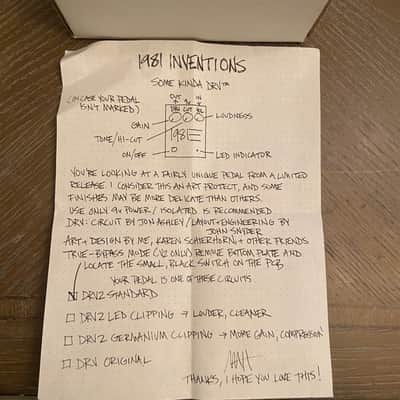 1981 INVENTIONS
SOME KINDA DRV™
(IN CASE YOUR PEDAL
ISN'T MARKED)
OUT 9V IN
GAIN
VOL CUT
LOUDNESS
TONE/HI-CUT
1981
ON/OFF
LED INDICATOR
YOU'RE LOOKING AT A FAIRLY UNIQUE PEDAL FROM A LIMITED
RELEASE. I CONSIDER THIS AN ART PROJECT, AND SOME
FINISHES MAY BE MORE DELICATE THAN OTHERS.
USE ONLY 9V POWER/ISOLATED IS RECOMMENDED
DRV: CIRCUIT BY JON ASHLEY/LAYOUT+ENGINEERING BY
JOHN SNYDER
ART+DESIGN BY ME, KAREN SCHIERHORN, + OTHER FRIENDS
TRUE-BYPASS MODE (V2 ONLY) REMOVE BOTTOM PLATE AND
LOCATE THE SMALL, BLACK SWITCH ON THE PCB
YOUR PEDAL IS ONE OF THESE CIRCUITS
DRV2 STANDARD
DRV2 LED CLIPPING → LOUDER, CLEANER
DRV2 GERMANIUM CLIPPING → MORE GAIN, COMPRESSION
DRV ORIGINAL
THANKS, I HOPE YOU LOVE THIS!